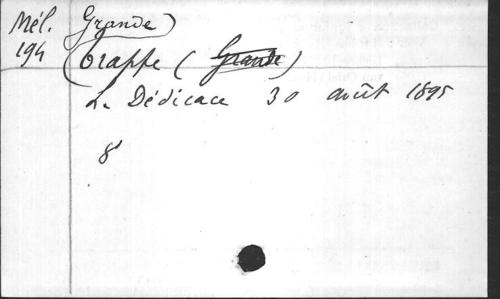 Mél. Grande)
194 (Trappe (Grande)
L. Dédicace 30 août 1895
8°